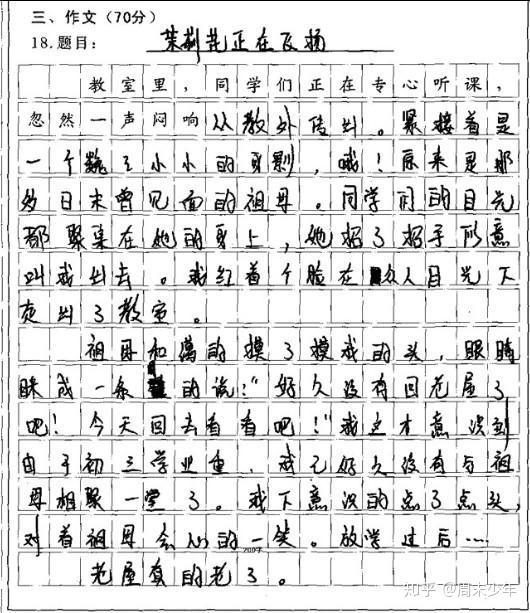 三、作文（70分）
18.题目：茉莉花正在飞扬
教室里，同学们正在专心听课，
忽然一声闷响从教外传出。紧接着是
一个巍々小小的身影，哦！原来是那
多日未曾见面的祖母。同学们的目光
都聚集在她的身上，她招了招手示意
叫我出去。我红着个脸在众人目光下
走出了教室。
祖母和蔼的摸了摸我的头，眼睛
眯成一条 的说："好久没有回老屋了
吧！今天回去看看吧！"我这才意识到
由于初三学业重，我已好久没有与祖
母相聚一堂了。我下意识的点了点头，
对着祖母会心的一笑。放学过后……
老屋真的老了。
知乎 @周末少年